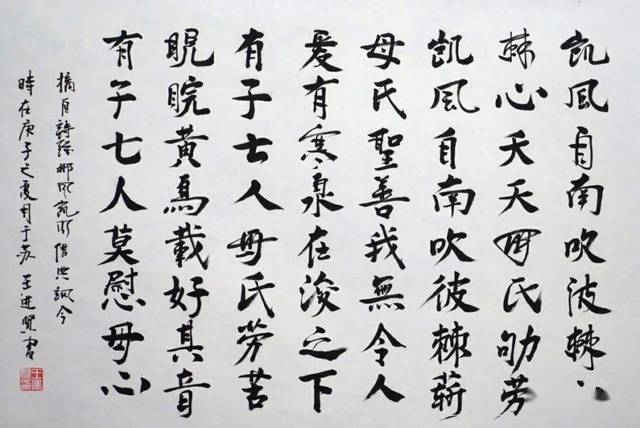 凱風自南吹彼棘心
棘心夭夭母氏劬劳
凱風自南吹彼棘薪
母氏聖善我無令人
爰有寒泉在浚之下
有子七人母氏劳苦
睍睆黄鳥載好其音
有子七人莫慰母心
摘自詩經邶風凱風借典諷今
時在庚子之夏月于苏 王进賢書